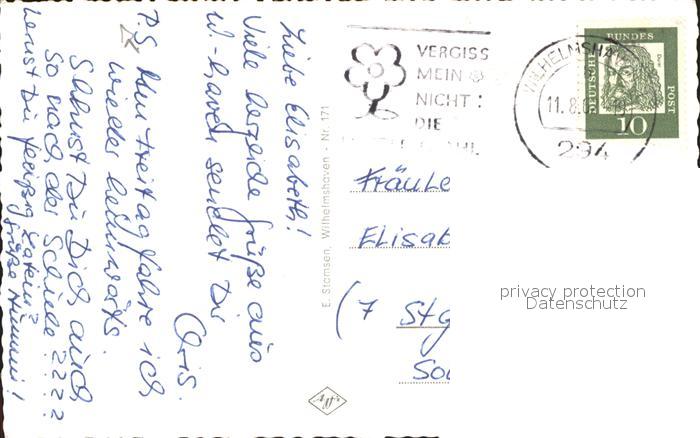 Liebe Elisabeth!
Viele herzliche Grüße aus
W-haven sendet Dir
Cris.
P.S. Am Freitag fahre ich
wieder heimwärts.
Sehnst Du Dich auch
so nach der Schule????
Lernst Du fleißig Latein?
E. Stamsen, Wilhelmshaven · Nr. 171
VERGISS
MEIN
NICHT:
DIE
WILHELMSHAV
11.8.6
294
BUNDES
DEUTSCHE
POST
10
Fräule
Elisab
(7 Stg
So
privacy protection
Datenschutz